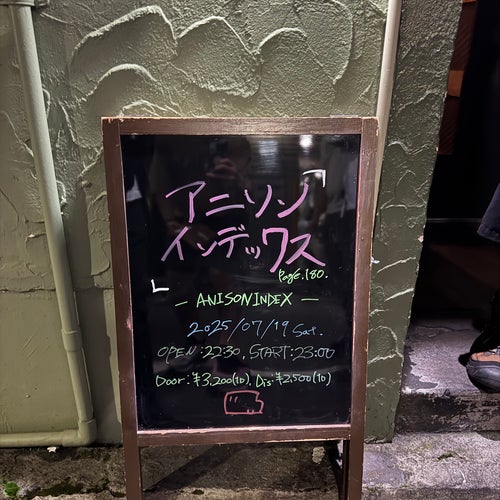 アニソン
インデックス
Page.180.
— ANISON INDEX —
2025/07/19 Sat.
OPEN:22:30, START:23:00
Door:¥3,200(1D), Dis:¥2,500(1D)